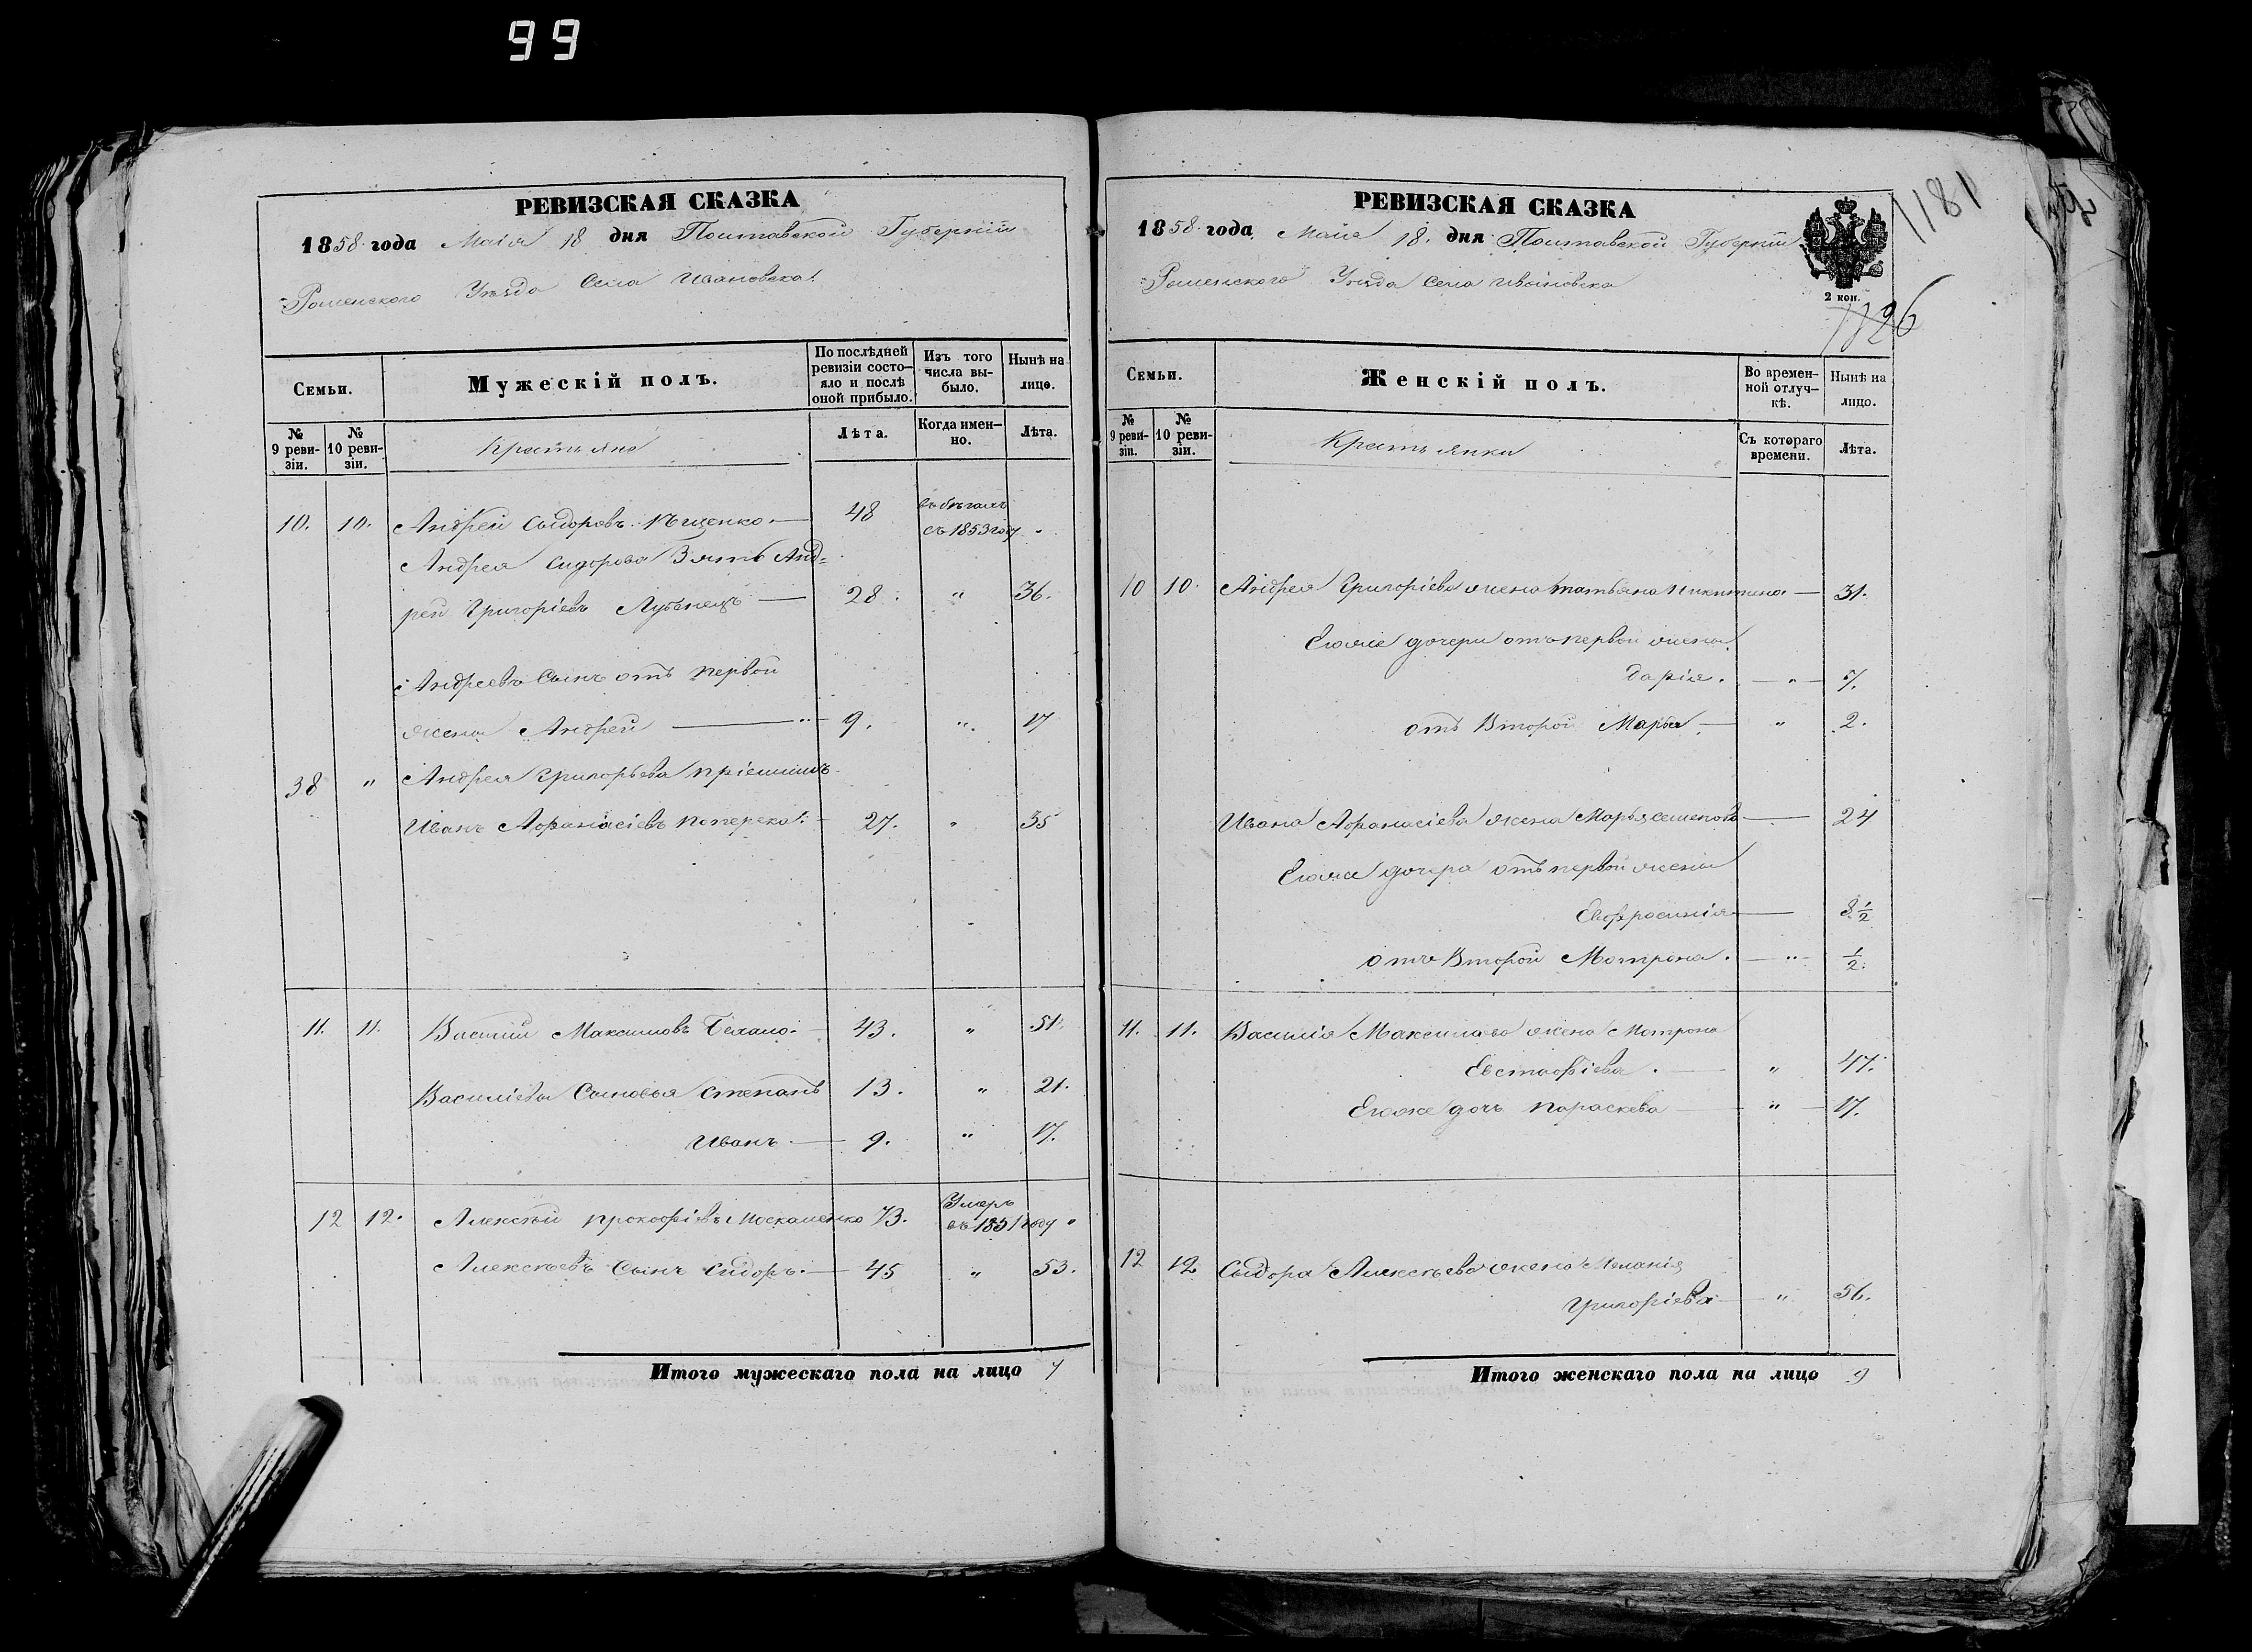 99
РЕВИЗСКАЯ СКАЗКА
1858 года Маія 18 дня Полтавской Губерніи
Роменского Уѣзда Села Ивановска
Семьи.
Мужескій полъ.
По послѣдней ревизіи состояло и послѣ оной прибыло.
Изъ того числа выбыло.
Нынѣ на лицо.
№ 9 ревизіи.
№ 10 ревизіи.
Крестьяне
Лѣта.
Когда именно.
Лѣта.
10. 10. Андрей Сыдоровъ 48 въ бѣгахъ
съ 1853 году
Андрея Сидорова Зять Анд-
рей Григоріевъ Лубенецъ 28 " 36.
Андреевъ Сынъ отъ первой
жены Андрей 9. " 17
38 " Андрея Григорьева пріемышъ
Иванъ Афанасіевъ Поперека 27. " 35
11. 11. Василій Максимовъ 43. " 51.
Василіевы Сыновья Степанъ 13. " 21.
Иванъ 9. " 17.
12 12. Алексѣй Прокофіевъ Москаленко 73. Умеръ
въ 1851 году "
Алексѣевъ Сынъ Сидоръ 45 " 53.
Итого мужескаго пола на лицо 7
РЕВИЗСКАЯ СКАЗКА
1858 года Маія 18. дня Полтавской Губерніи
Роменского Уѣзда села Ивановска
2 коп.
1181
1126
Семьи.
Женскій полъ.
Во временной отлучкѣ.
Нынѣ на лицо.
№ 9 ревизіи.
№ 10 ревизіи.
Крестьянки
Съ котораго времени.
Лѣта.
10 10. Андрея Григоріева жена Татьяна Никитина 31.
Егоже дочери отъ первой жены
Дарія. " 7.
отъ Второй Марья " 2.
Ивана Афанасіева жена Марья Семенова 24
Егоже дочери отъ первой жены
Евфросинія 8 1/2
отъ Второй Мотрона. " 1/2.
11. 11. Василія Максимова жена Мотрона
Евстафіева. " 47.
Егоже дочь Параскева " 17.
12 12 Сыдора Алексѣева жена Меланія
Григоріева " 56.
Итого женскаго пола на лицо 9